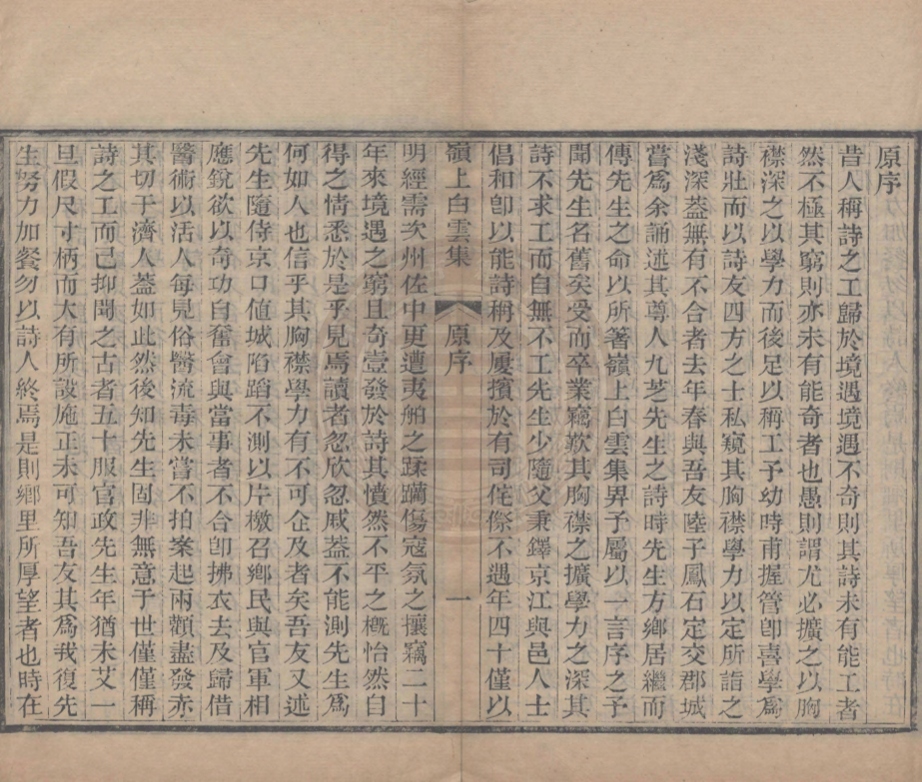 原序
昔人稱詩之工歸於境遇境遇不奇則其詩未有能工者
然不極其窮則亦未有能奇者也愚則謂尤必擴之以胸
襟深之以學力而後足以稱工予幼時甫握管卽喜學爲
詩壯而以詩友四方之士私窺其胸襟學力以定所詣之
淺深葢無有不合者去年春與吾友陸子鳳石定交郡城
嘗爲余誦述其尊人九芝先生之詩時先生方鄉居繼而
傳先生之命以所著嶺上白雲集畀予屬以一言序之予
聞先生名舊矣受而卒業竊歎其胸襟之擴學力之深其
詩不求工而自無不工先生少隨父秉鐸京江與邑人士
倡和卽以能詩稱及屢擯於有司侘傺不遇年四十僅以
嶺上白雲集
原序
一
明經需次州佐中更遭夷舶之蹂躪傷寇氛之攘竊二十
年來境遇之窮且奇壹發於詩其憤然不平之概怡然自
得之情悉於是乎見焉讀者忽欣忽戚葢不能測先生爲
何如人也信乎其胸襟學力有不可企及者矣吾友又述
先生隨侍京口値城陷蹈不測以片檄召鄉民與官軍相
應銳欲以奇功自奮會與當事者不合卽拂衣去及歸借
醫術以活人每見俗醫流毒未嘗不拍案起兩顴盡發赤
其切于濟人葢如此然後知先生固非無意于世僅僅稱
詩之工而已抑聞之古者五十服官政先生年猶未艾一
旦假尺寸柄而大有所設施正未可知吾友其爲我復先
生努力加餐勿以詩人終焉是則鄉里所厚望者也時在